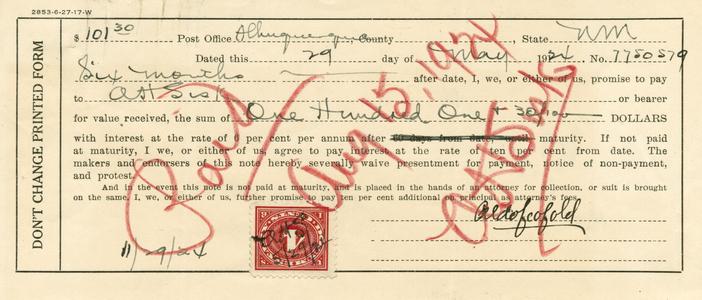 2853-6-27-17-W
DON'T CHANGE PRINTED FORM
$ 101 30 Post Office Albuquerque County , State NM
Dated this 29 day of May 1924 No. 7750579
Six months after date, I, we, or either of us, promise to pay
to A H Sisk or bearer
for value received, the sum of One Hundred One + 30/100 DOLLARS
with interest at the rate of 6 per cent per annum after 60 days from date until maturity. If not paid
at maturity, I, we, or either of us, agree to pay interest at the rate of ten per cent from date. The
makers and endorsers of this note hereby severally waive presentment for payment, notice of non-payment,
and protest.
And in the event this note is not paid at maturity, and is placed in the hands of an attorney for collection, or suit is brought
on the same, I, we, or either of us, further promise to pay ten per cent additional on principal as attorney's fees.
Paid Aug 15, 1924
A H Sisk
11/29/24
5/29/24